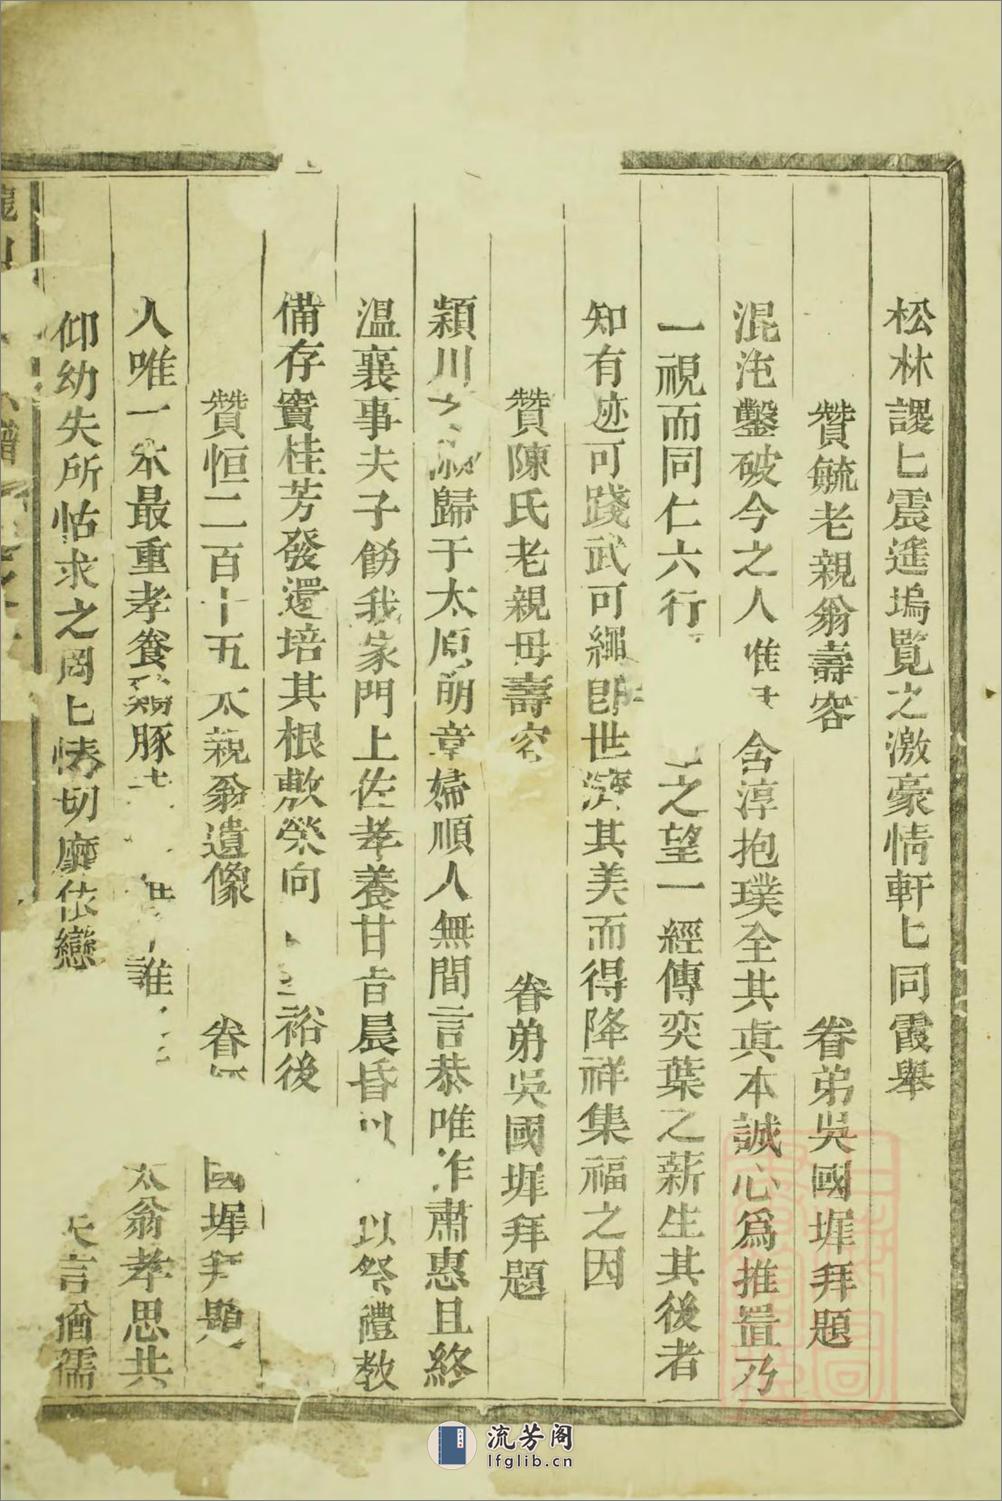 松林謖匕震遙塢覽之激豪情軒匕同霞舉
贊毓老親翁壽容 眷弟吳國墀拜題
混沌鑿破今之人惟 含淳抱璞全其真本誠心爲推置乃
一視而同仁六行 之望一經傳奕葉之薪生其後者
知有迹可踐武可繩卽世濟其美而得降祥集福之因
贊陳氏老親母壽容 眷弟吳國墀拜題
潁川之 歸于太原朔章婦順人無間言恭唯作肅惠且終
溫襄事夫子飭我家門上佐孝養甘旨晨昏以 以祭禮教
備存竇桂芳發還培其根敷榮向 裕後
贊恒二百十五太親翁遺像 眷 國墀拜題
人唯一本最重孝養 豚 誰 太翁孝思共
仰幼失所怙求之罔匕情切靡依戀 天言猶孺
流芳阁
lfglib.cn